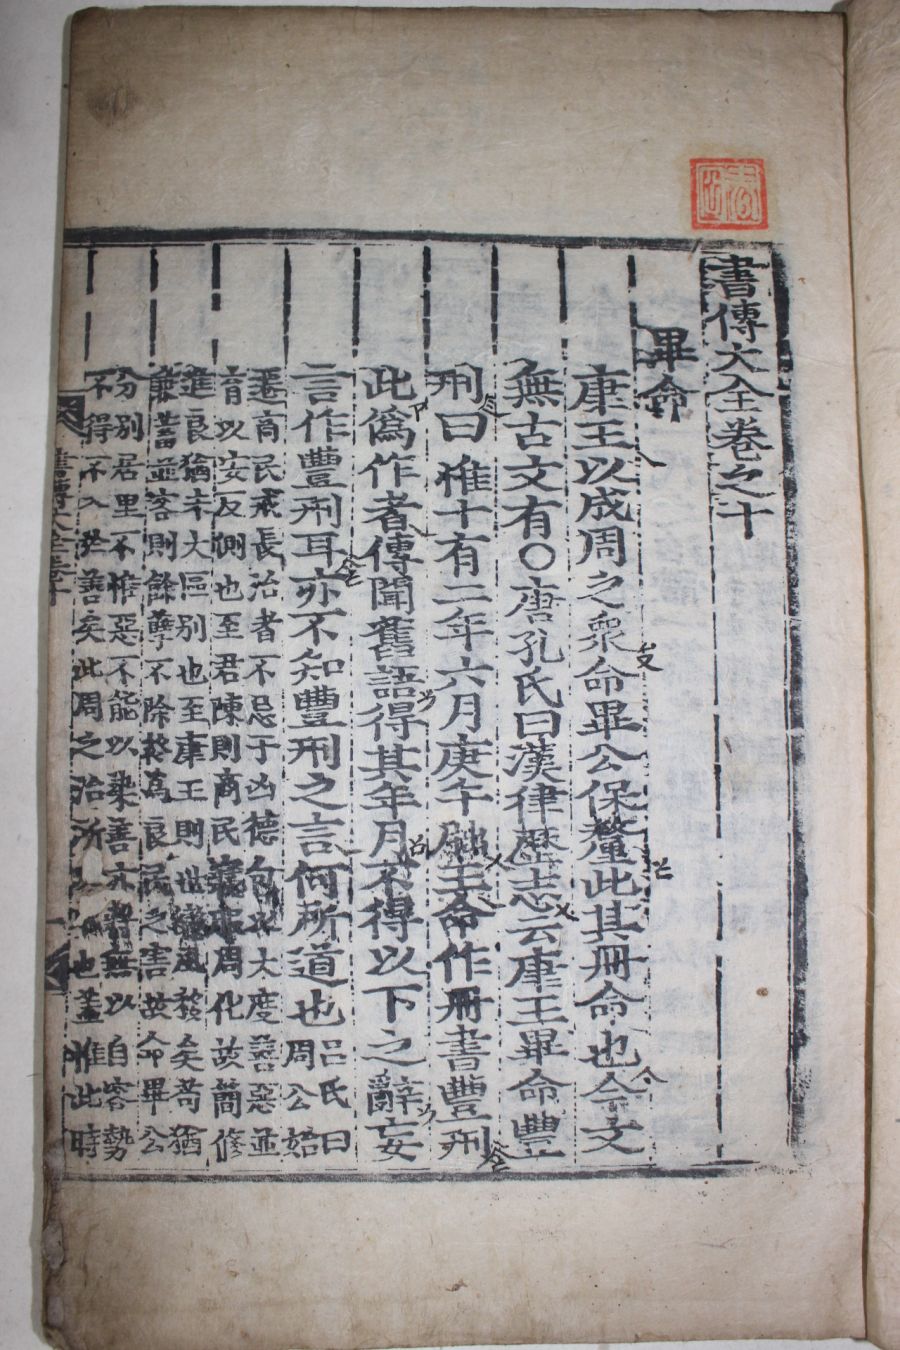 書傳大全卷之十
畢命
康王以成周之衆命畢公保釐此其冊命也今文
無古文有○唐孔氏曰漢律歷志云康王畢命豐
刑曰惟十有二年六月庚午朏王命作冊書豐刑
此僞作者傳聞舊語得其年月不得以下之辭妄
言作豐刑耳亦不知豐刑之言何所道也呂氏曰
周公始
遷商民戒長治者不忌于凶德包以大度善惡並
育以安反側也至君陳則商民周化故簡修
進良猶未大區別也至康王則世變風移矣苟猶
兼蓄並容則餘孽不除終爲良民之害故命畢公
分別居里不惟惡不能以染善亦無以自容勢
不得不入於善矣此周之治所也蓋惟此時